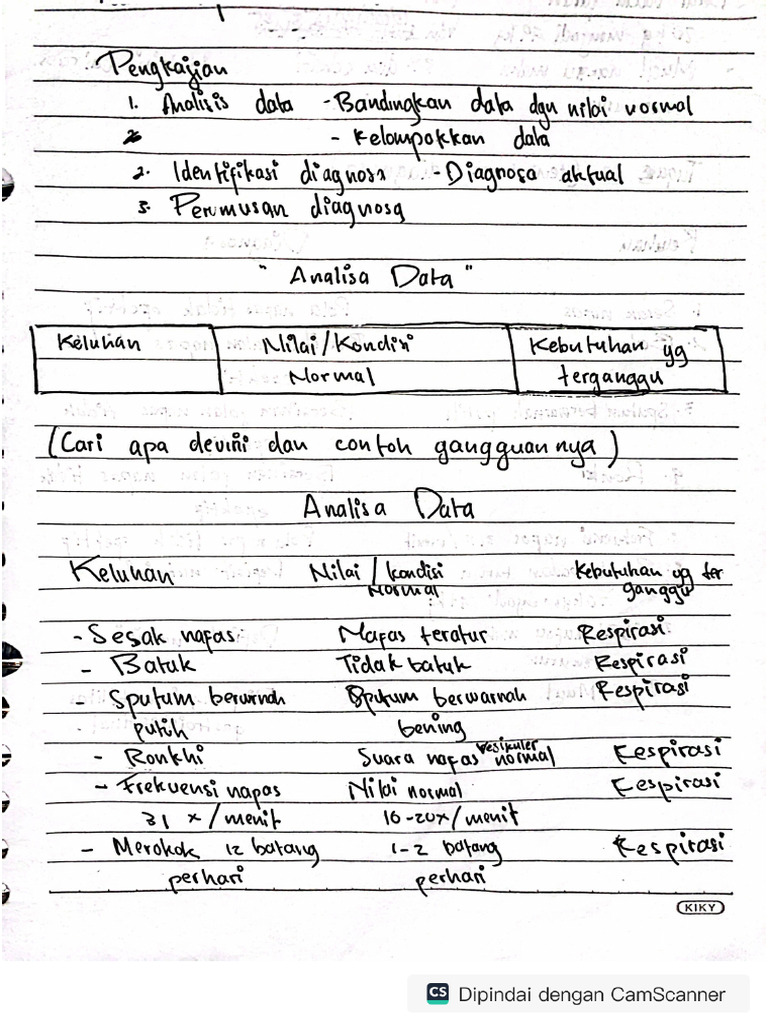 Pengkajian
1. Analisis data - Bandingkan data dgn nilai normal
- Kelompokkan data
2. Identifikasi diagnosa - Diagnosa aktual
3. Perumusan diagnosa
" Analisa Data "
Keluhan Nilai / Kondisi Kebutuhan yg
Normal terganggu
(Cari apa devini dan contoh gangguannya)
Analisa Data
Keluhan Nilai / kondisi Kebutuhan yg ter
Normal ganggu
- Sesak napas Nafas teratur Respirasi
- Batuk Tidak batuk Respirasi
- Sputum berwrnah Sputum berwarnah Respirasi
putih bening
- Ronkhi Suara nafas vesikuler normal Respirasi
- Frekuensi napas Nilai normal Respirasi
31 x / menit 16-20x / menit
- Merokok 12 batang 1-2 batang Respirasi
perhari perhari
KIKY
CS Dipindai dengan CamScanner